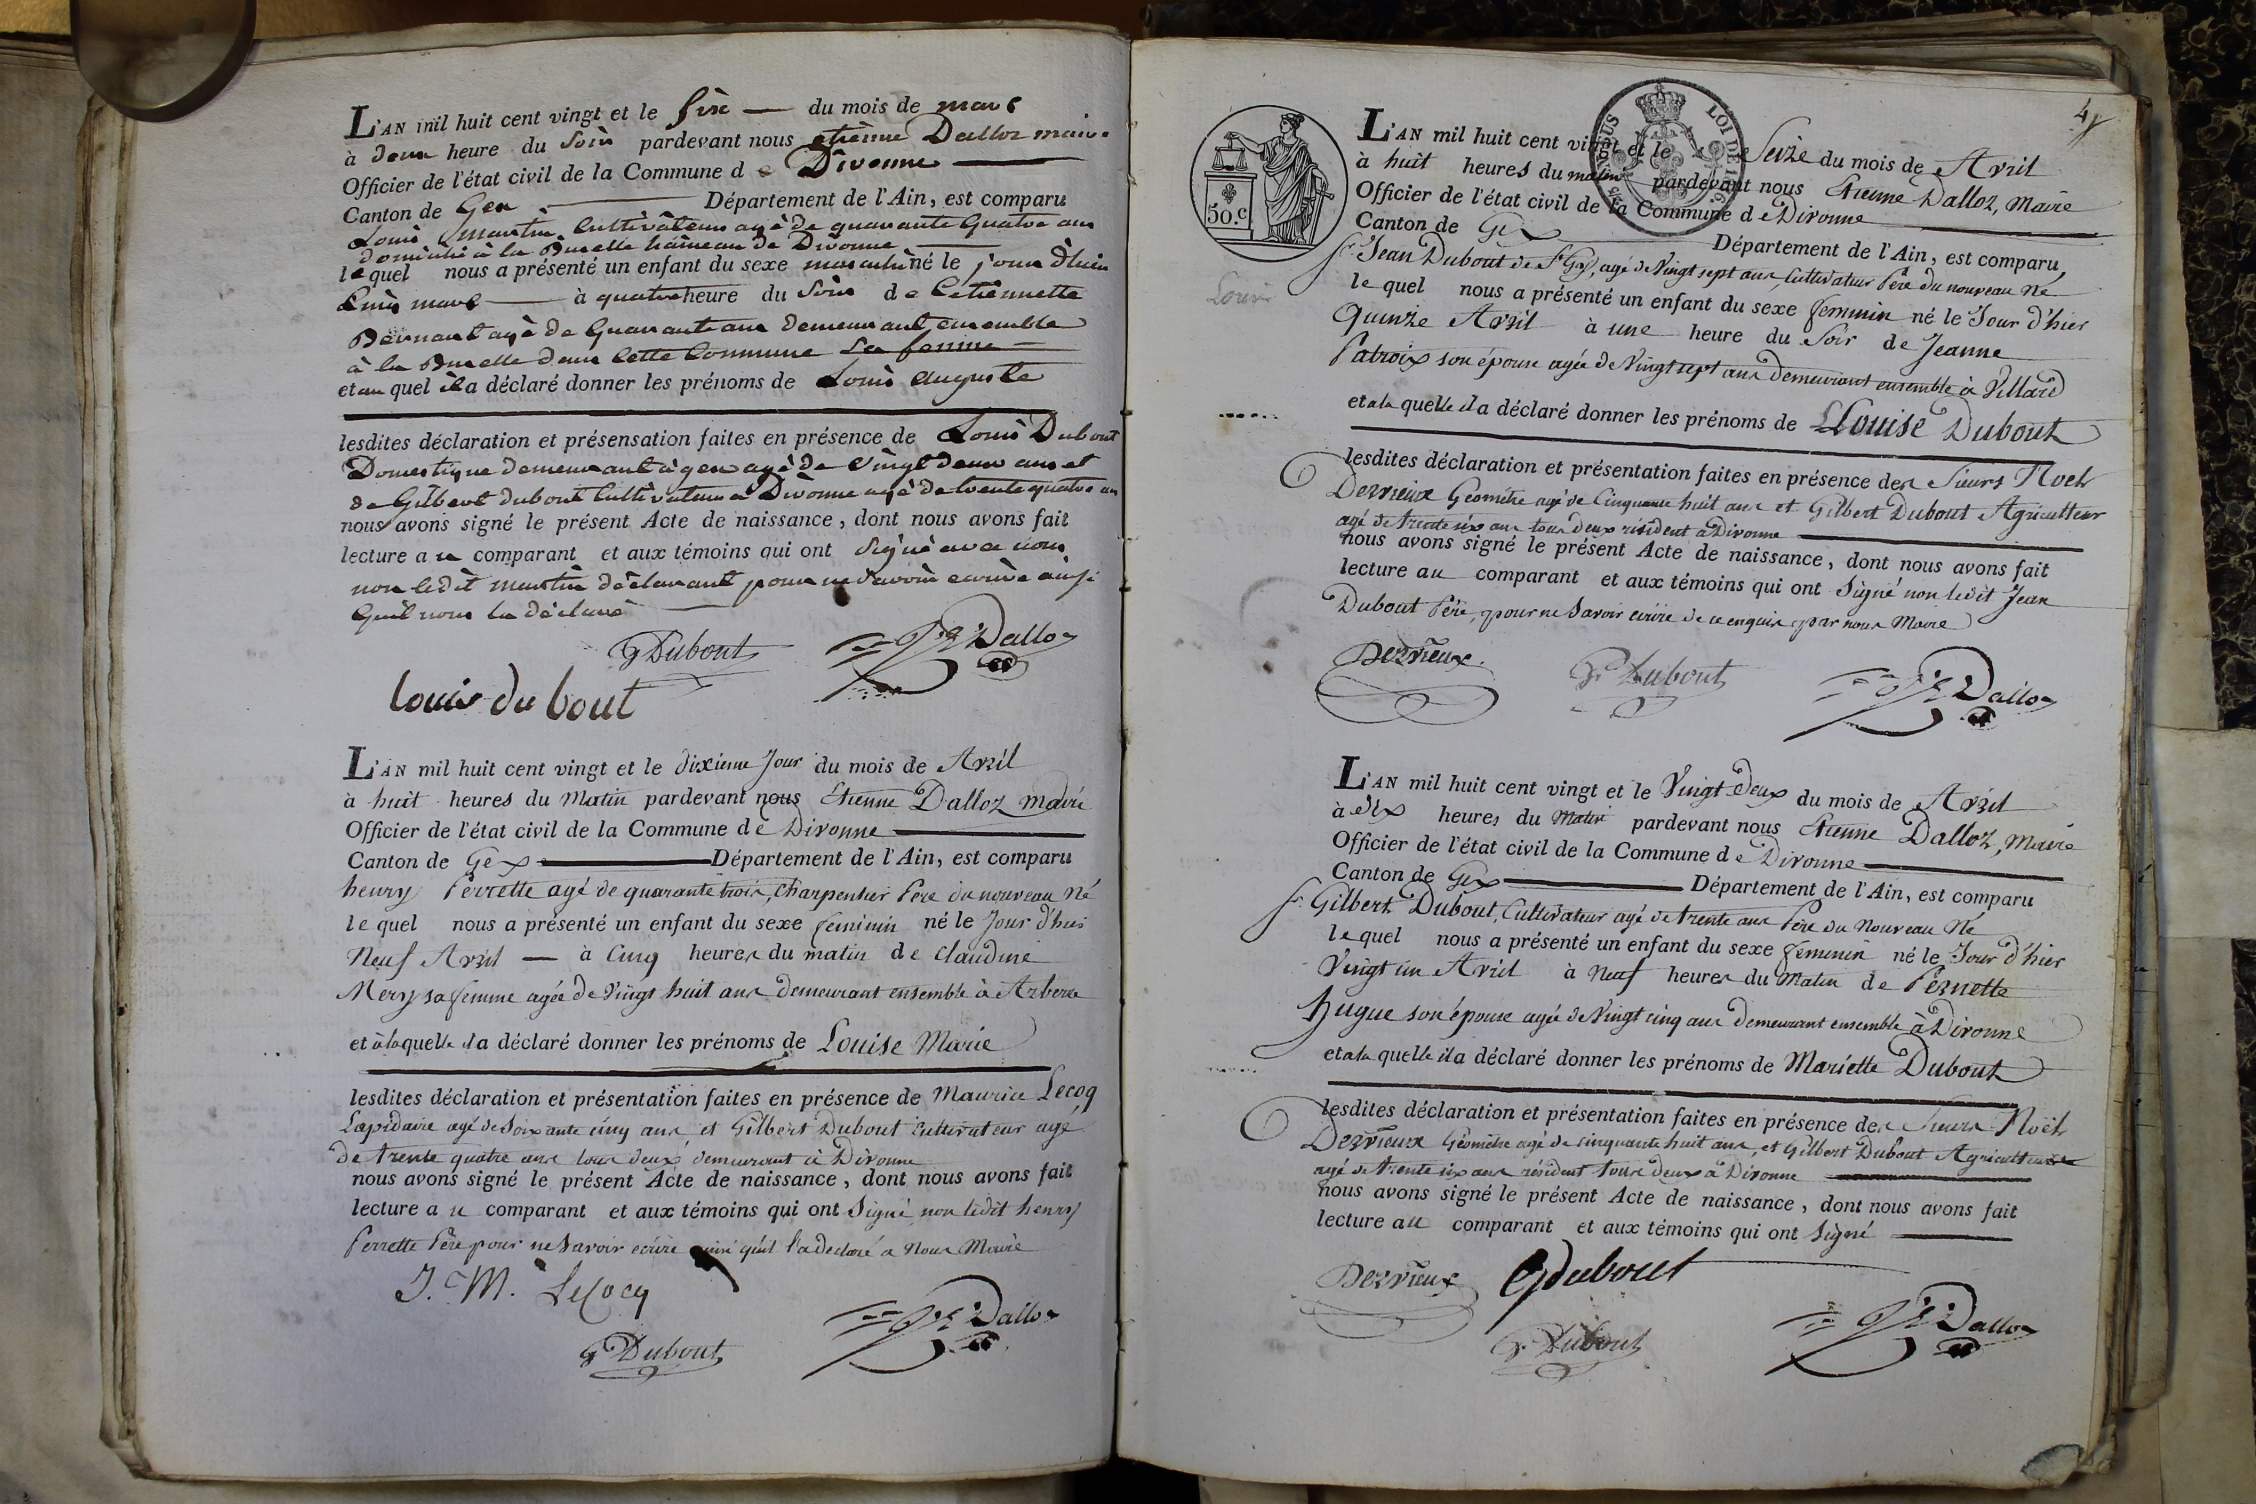 L'AN mil huit cent vingt et le six du mois de mars
à deux heure du Soir pardevant nous etienne Dalloz maire
Officier de l'état civil de la Commune de Divonne
Canton de Gex Département de l'Ain, est comparu
Louis martin Cultivateur agé de quarante quatre ans
domicilié à la Hameau de Divonne
lequel nous a présenté un enfant du sexe masculin né le jour d'hier
Cinq mars à quatre heure du Soir de
agé de quarante ans demeurant ensemble
à la dans Cette Commune Sa femme
et au quel il a déclaré donner les prénoms de Louis auguste
lesdites déclaration et présensation faites en présence de Louis Dubout
Domestique demeurant à gex agé de vingt deux ans et
de Gilbert dubout Cultivateur a Divonne agé de trente quatre an
nous avons signé le présent Acte de naissance, dont nous avons fait
lecture au comparant et aux témoins qui ont Signé avec nous
non ledit martin déclarant pour ne Savoir ecrire ainsi
quil nous la déclaré
G Dubout Dalloz
louis du bout
L'AN mil huit cent vingt et le dixieme Jour du mois de Avril
à huit heures du Matin pardevant nous Etienne Dalloz maire
Officier de l'état civil de la Commune de Divonne
Canton de Gex Département de l'Ain, est comparu
henry Perrette agé de quarante trois, Charpentier Père du nouveau Né
lequel nous a présenté un enfant du sexe feminin né le Jour d'hier
Neuf Avril à Cinq heures du matin de Claudine
Mery sa femme agée de Vingt huit ans demeurant ensemble à Arbere
et à laquelle il a déclaré donner les prénoms de Louise Marie
lesdites déclaration et présentation faites en présence de Maurice Lecoq
Lapidaire agé de Soixante cinq ans et Gilbert Dubout Cultivateur agé
de trente quatre ans tous deux demeurant à Divonne
nous avons signé le présent Acte de naissance, dont nous avons fait
lecture au comparant et aux témoins qui ont Signé non ledit henry
Perrette Père pour ne Savoir ecrire ainsi qu'il l'a declaré a Nous Maire
J. M. LeCocq
G Dubout Dalloz
4
LOI DE 1816.
50.c
L'AN mil huit cent vingt et le Seize du mois de Avril
à huit heures du matin pardevant nous Etienne Dalloz, Maire
Officier de l'état civil de la Commune de Divonne
Canton de Gex Département de l'Ain, est comparu
Jean Dubout de agé de Vingt sept ans, Cultivateur Père du nouveau Né
lequel nous a présenté un enfant du sexe feminin né le Jour d'hier
Quinze Avril à une heure du Soir de Jeanne
Patroix son épouse agée de Vingt sept ans demeurant ensemble à Villard
et a la quelle il a déclaré donner les prénoms de Louise Dubout
lesdites déclaration et présentation faites en présence des Sieurs Noel
Dervieux Géomètre agé de Cinquante huit ans et Gilbert Dubout Agriculteur
agé de trente six ans tous deux résident à Divonne
nous avons signé le présent Acte de naissance, dont nous avons fait
lecture au comparant et aux témoins qui ont Signé non ledit Jean
Dubout Père, pour ne Savoir ecrire de ce enquis par nous Maire
Dervieux. G Dubout Dalloz
L'AN mil huit cent vingt et le Vingt Deux du mois de Avril
à dix heures du Matin pardevant nous Etienne Dalloz, Maire
Officier de l'état civil de la Commune de Divonne
Canton de Gex Département de l'Ain, est comparu
Gilbert Dubout, Cultivateur agé de trente ans Père du Nouveau Né
lequel nous a présenté un enfant du sexe feminin né le Jour d'hier
Vingt un Avril à Neuf heures du Matin de Pernette
hugue son épouse agée de Vingt cinq ans demeurant ensemble à Divonne
et a la quelle il a déclaré donner les prénoms de Mariette Dubout
lesdites déclaration et présentation faites en présence des Sieurs Noël
Dervieux Géomètre agé de cinquante huit ans, et Gilbert Dubout Agriculteur
agé de trente six ans résident tous deux à Divonne
nous avons signé le présent Acte de naissance, dont nous avons fait
lecture au comparant et aux témoins qui ont Signé
Dervieux G dubout
G Dubout Dalloz